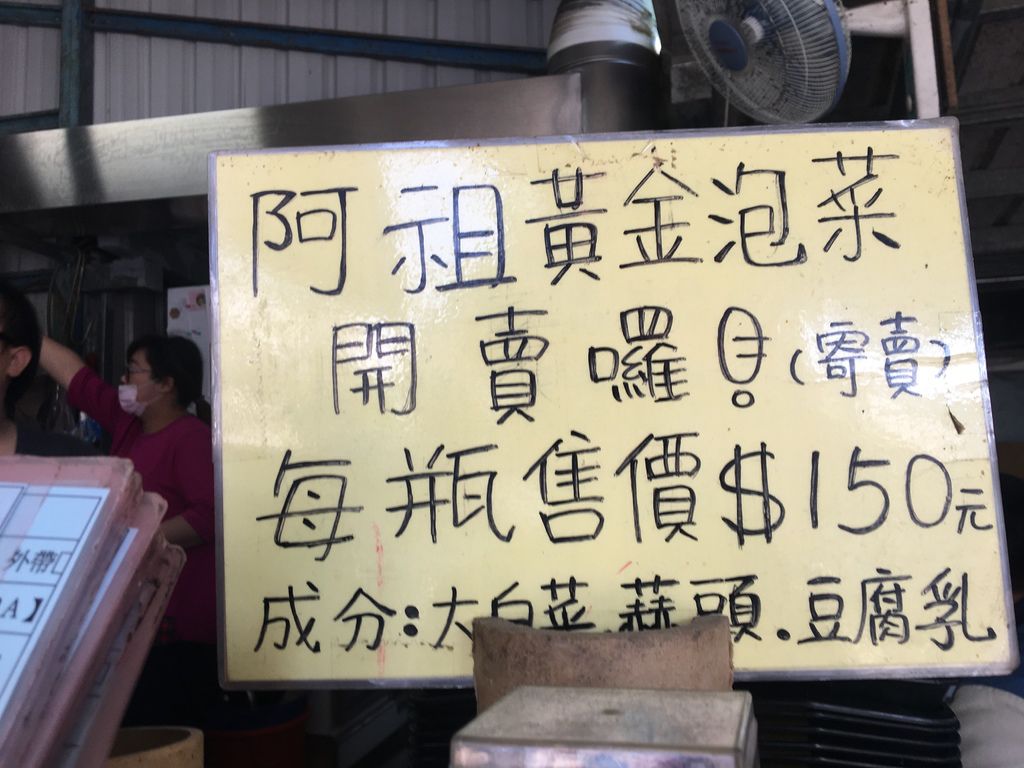 阿祖黃金泡菜
開賣囉！(寄賣)
每瓶售價$150元
成分:大白菜.蒜頭.豆腐乳
外帶
A】